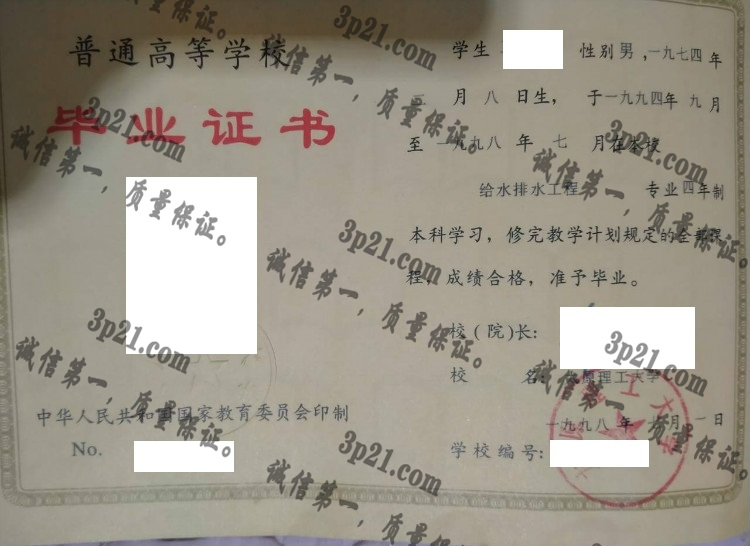 普通高等学校
毕业证书
中华人民共和国国家教育委员会印制
No.
学生 性别 男，一九七四年
三 月 八 日生，于一九九四年 九月
至 一九九八 年 七 月在本校
给水排水工程 专业 四年制
本科学习，修完教学计划规定的全部课
程，成绩合格，准予毕业。
校（院）长：
校 名：太原理工大学
一九九八 年 七月 一日
学校编号：
3p21.com
诚信第一，质量保证。
3p21.com
诚信第一，质量保证。
3p21.com
诚信第一，质量保证。
3p21.com
诚信第一，质量保证。
3p21.com
诚信第一，质量保证。
3p21.com
诚信第一，质量保证。
3p21.com
诚信第一，质量保证。
3p21.com
诚信第一，质量保证。